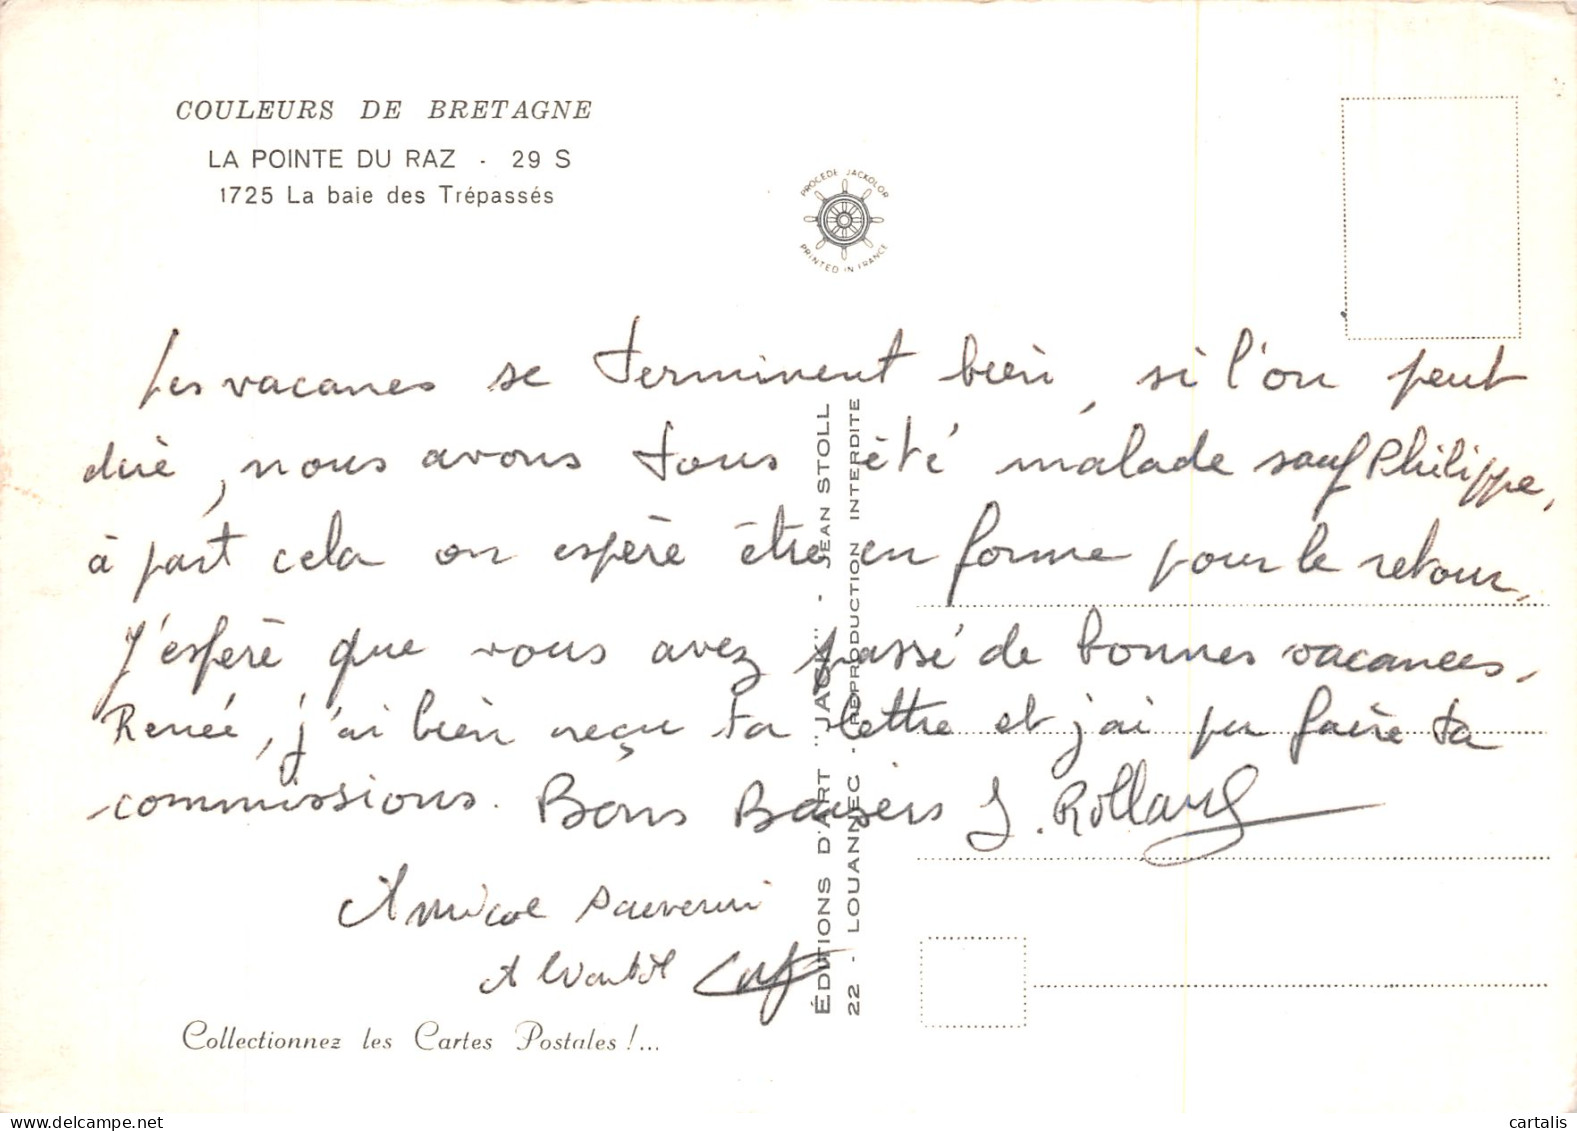 COULEURS DE BRETAGNE
LA POINTE DU RAZ - 29 S
1725 La baie des Trépassés
PROCÉDÉ JACKOLOR
PRINTED IN FRANCE
Les vacances se terminent bien, si l'on peut
dire, nous avons tous été malade sauf Philippe,
à part cela on espère être en forme pour le retour.
J'espère que vous avez passé de bonnes vacances.
Renée, j'ai bien reçu ta lettre et j'ai pu faire ta
commissions. Bons Baisers J. Rolland
Amical souvenir
A bientôt
ÉDITIONS D'ART "JACK" - JEAN STOLL
22 - LOUANNEC - REPRODUCTION INTERDITE
Collectionnez les Cartes Postales !...
delcampe.net
cartalis